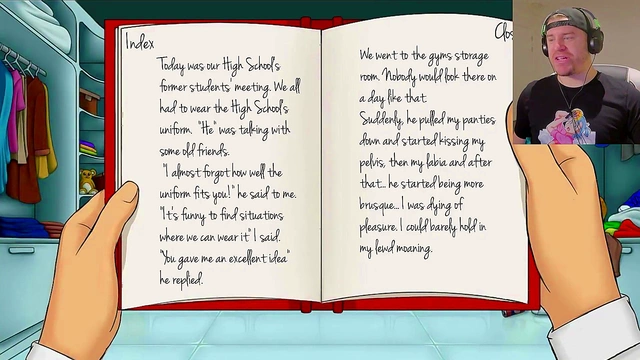 Index
Today was our High School's
former students' meeting. We all
had to wear the High School's
uniform. "He" was talking with
some old friends.
"I almost forgot how well the
uniform fits you!" he said to me.
"It's funny to find situations
where we can wear it" I said.
"You gave me an excellent idea"
he replied.
Clos
We went to the gyms storage
room. Nobody would look there on
a day like that.
Suddenly, he pulled my panties
down and started kissing my
pelvis, then my labia and after
that... he started being more
brusque... I was dying of
pleasure. I could barely hold in
my lewd moaning.